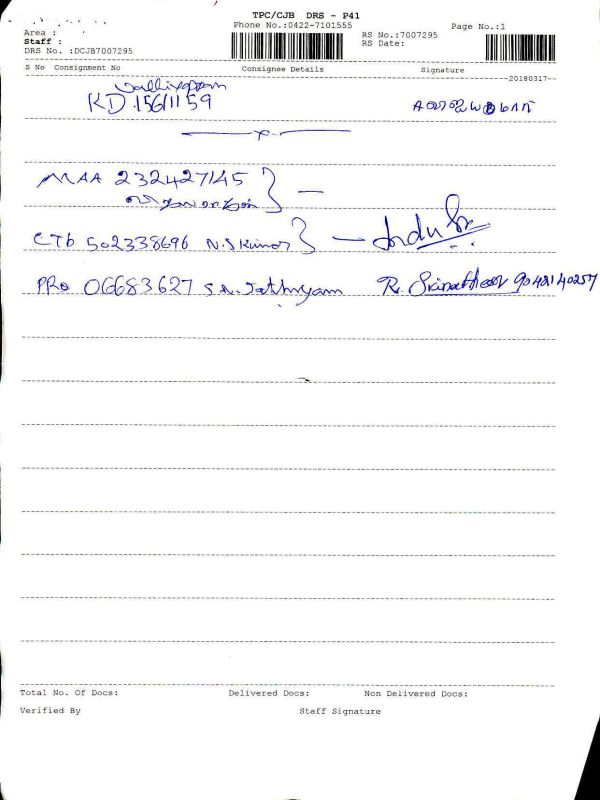 TPC/CJB DRS - P41
Phone No.:0422-7101555
Page No.:1
Area :
Staff :
DRS No. :DCJB7007295
RS No.:7007295
RS Date:
S No Consignment No Consignee Details Signature
20180317
KD 15611159
MAA 232427145
CTB 502338696 N.S Kumar
PRO 06683627 S.N. R. Srinathan 9042140257
Total No. Of Docs: Delivered Docs: Non Delivered Docs:
Verified By Staff Signature